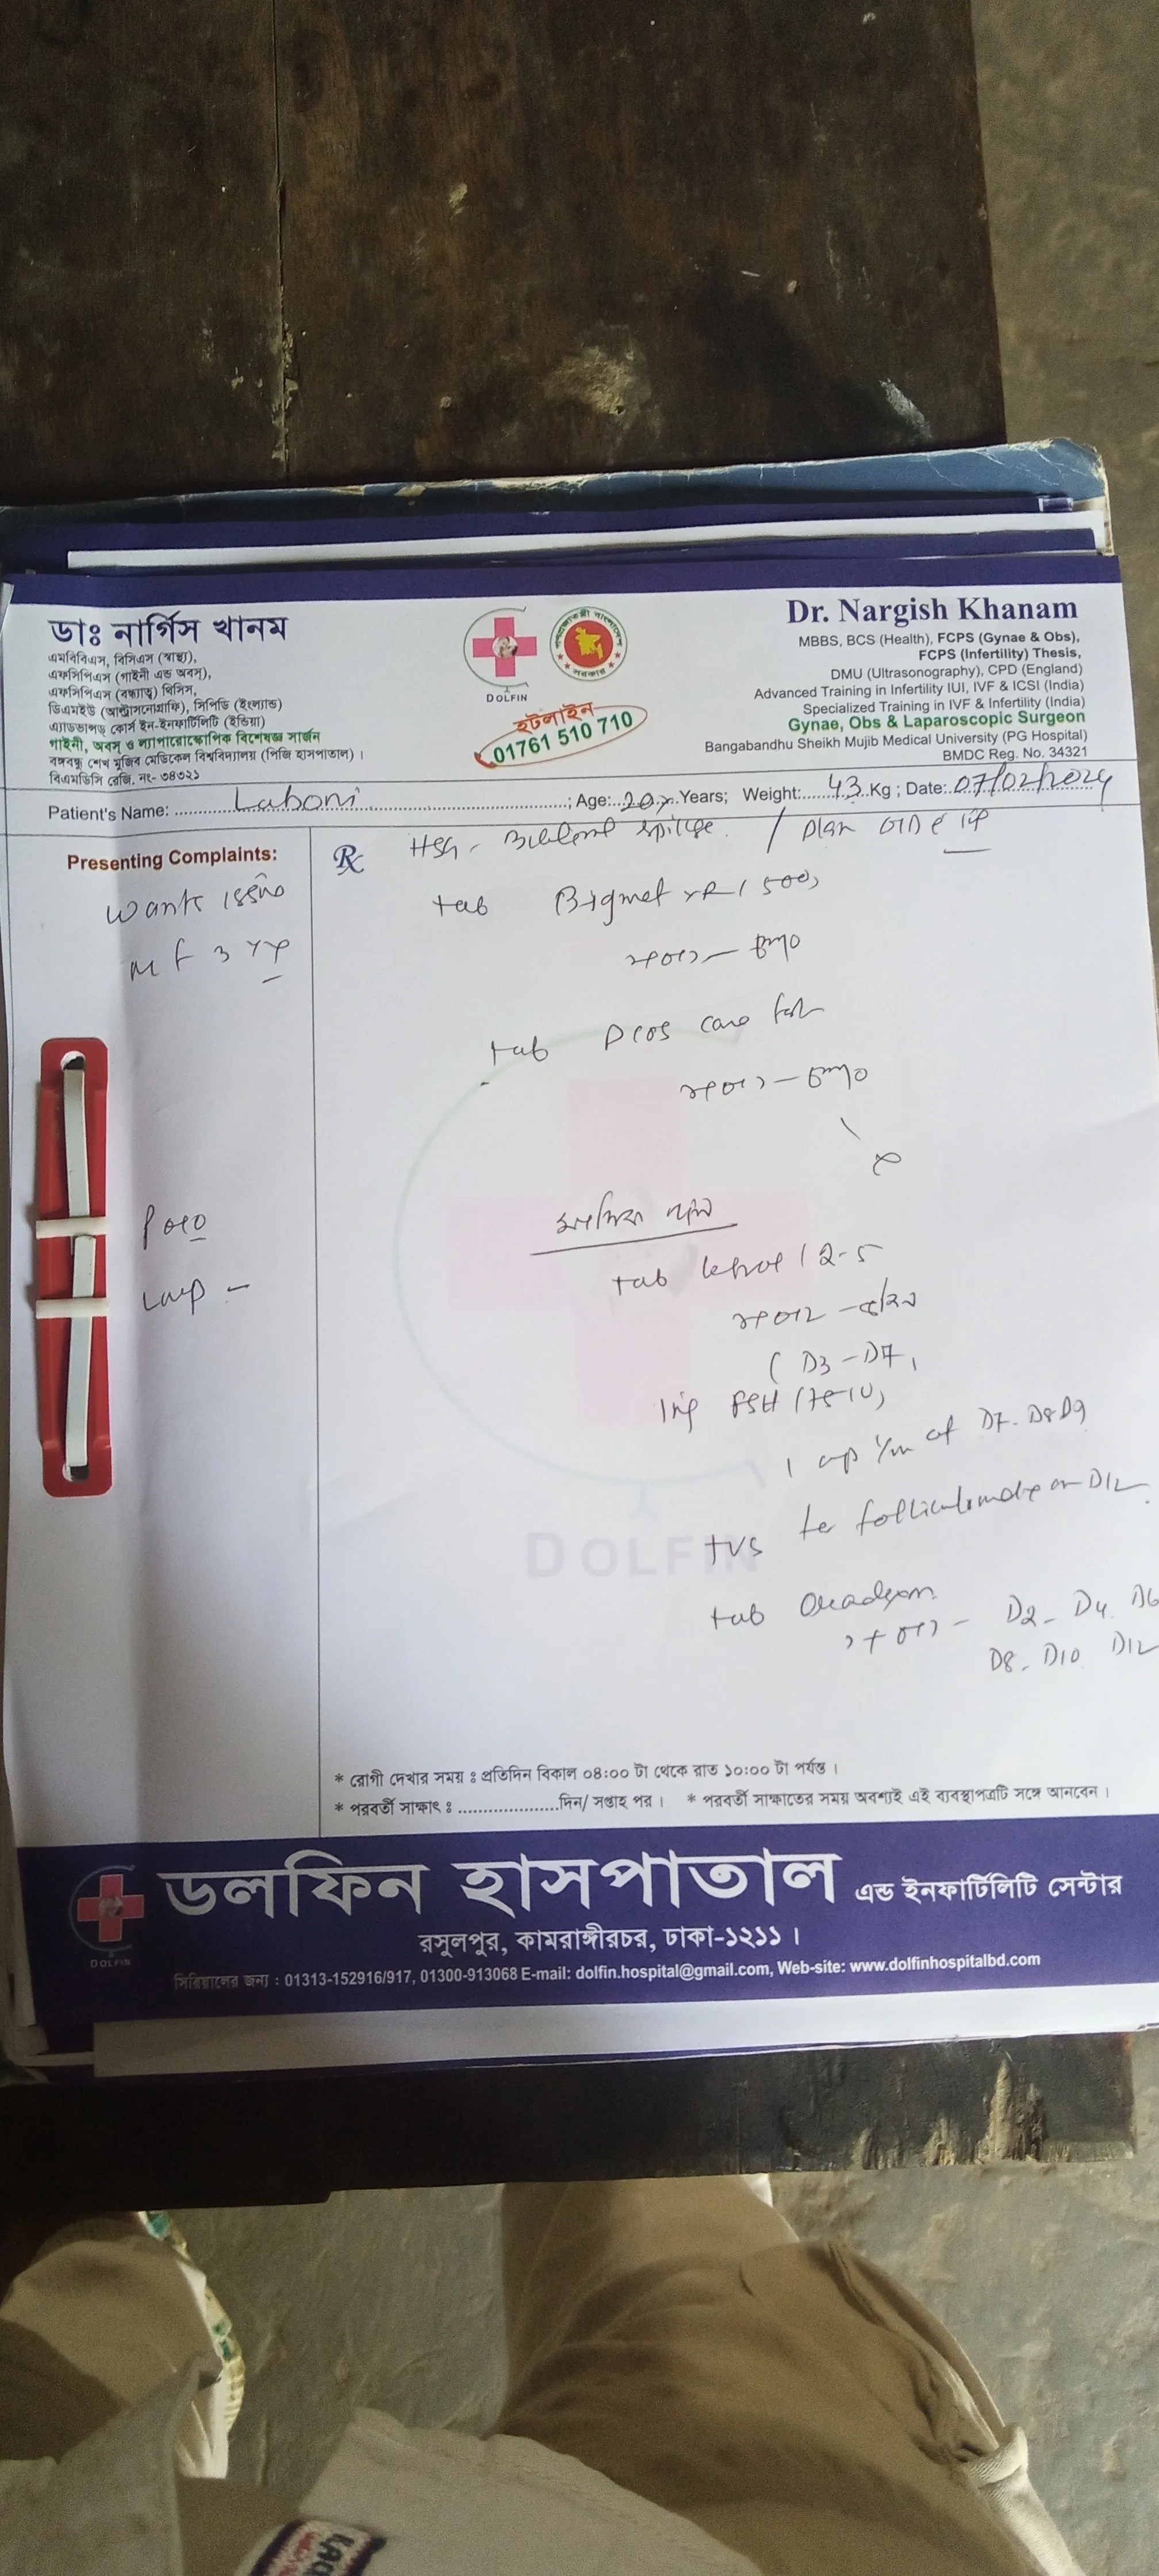 ডাঃ নার্গিস খানম
এমবিবিএস, বিসিএস (স্বাস্থ্য),
এফসিপিএস (গাইনী এন্ড অবস),
এফসিপিএস (বন্ধ্যাত্ব) থিসিস,
ডিএমইউ (আল্ট্রাসনোগ্রাফি), সিপিডি (ইংল্যান্ড)
এ্যাডভান্সড্ কোর্স ইন-ইনফার্টিলিটি (ইন্ডিয়া)
গাইনী, অবস্ ও ল্যাপারোস্কোপিক বিশেষজ্ঞ সার্জন
বঙ্গবন্ধু শেখ মুজিব মেডিকেল বিশ্ববিদ্যালয় (পিজি হাসপাতাল)।
বিএমডিসি রেজি. নং- ৩৪৩২১
DOLFIN
হটলাইন
01761 510 710
Dr. Nargish Khanam
MBBS, BCS (Health), FCPS (Gynae & Obs),
FCPS (Infertility) Thesis,
DMU (Ultrasonography), CPD (England)
Advanced Training in Infertility IUI, IVF & ICSI (India)
Specialized Training in IVF & Infertility (India)
Gynae, Obs & Laparoscopic Surgeon
Bangabandhu Sheikh Mujib Medical University (PG Hospital)
BMDC Reg. No. 34321
Patient's Name: Laboni ; Age: 20 Years; Weight: 43 Kg ; Date: 07/02/2024
Presenting Complaints:
Wants issue
MF 3 yr
Rx
HSG - Bilateral spillage / Plan
tab Bigmet XR (500)
tab PCOS care
tab (2.5
(D3 - D7)
Inj FSH (75 IU)
1 amp I/m of D7. D8 D9
TVS for on D12
tab
D2 - D4 D6
D8 - D10 D12
DOLFIN
* রোগী দেখার সময় ঃ প্রতিদিন বিকাল ০৪:০০ টা থেকে রাত ১০:০০ টা পর্যন্ত।
* পরবর্তী সাক্ষাৎ ঃ ......................দিন/ সপ্তাহ পর। * পরবর্তী সাক্ষাতের সময় অবশ্যই এই ব্যবস্থাপত্রটি সঙ্গে আনবেন।
DOLFIN
ডলফিন হাসপাতাল এন্ড ইনফার্টিলিটি সেন্টার
রসুলপুর, কামরাঙ্গীরচর, ঢাকা-১২১১।
সিরিয়ালের জন্য : 01313-152916/917, 01300-913068 E-mail: dolfin.hospital@gmail.com, Web-site: www.dolfinhospitalbd.com